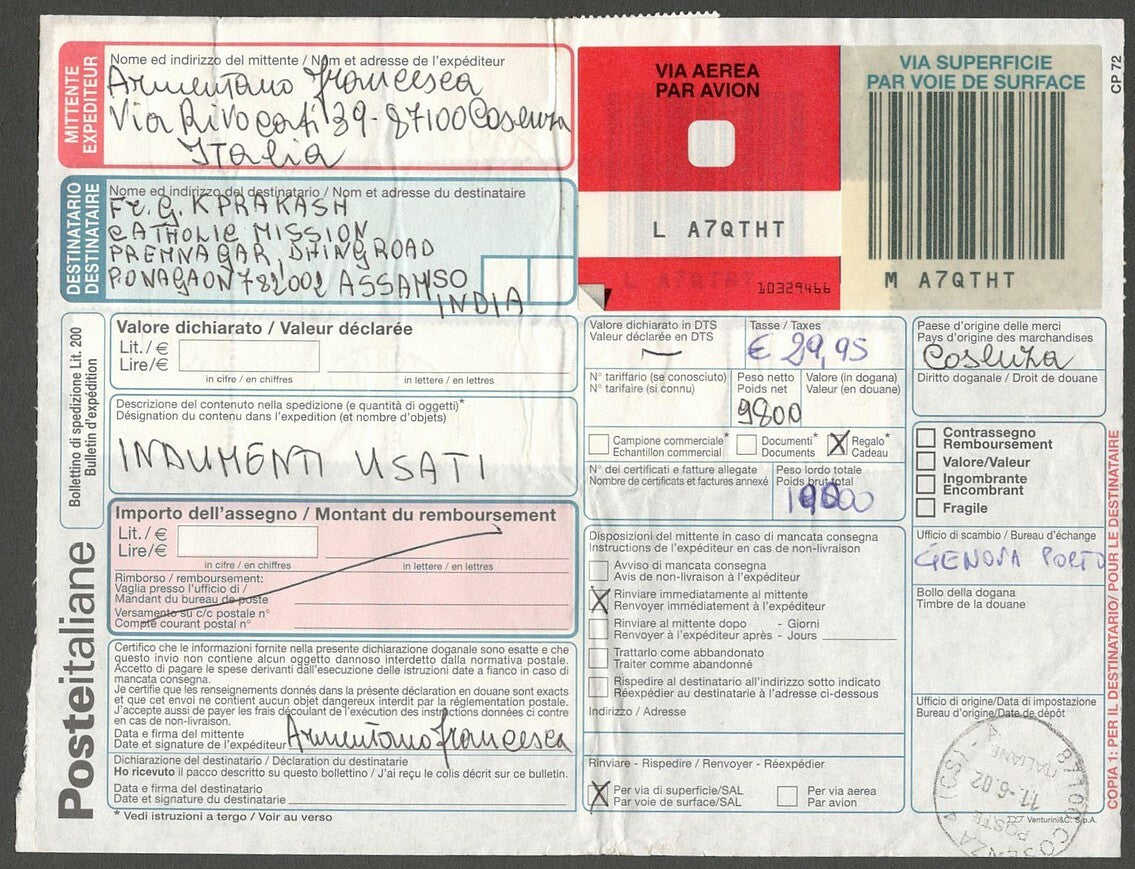 MITTENTE
EXPEDITEUR
Nome ed indirizzo del mittente / Nom et adresse de l'expéditeur
Armentano Francesca
Via Rivocati 39 - 87100 Cosenza
Italia
DESTINATARIO
DESTINATAIRE
Nome ed indirizzo del destinatario / Nom et adresse du destinataire
Fr. G. K PRAKASH
CATHOLIC MISSION
PREMNAGAR, DHING ROAD
P.O NAGAON 782002 ASSAM
ISO
INDIA
VIA AEREA
PAR AVION
L A7QTHT
10329466
VIA SUPERFICIE
PAR VOIE DE SURFACE
M A7QTHT
CP 72
Bollettino di spedizione Lit. 200
Bulletin d'expédition
Valore dichiarato / Valeur déclarée
Lit. / €
Lire/€
in cifre / en chiffres
in lettere / en lettres
Descrizione del contenuto nella spedizione (e quantità di oggetti)*
Désignation du contenu dans l'expedition (et nombre d'objets)
INDUMENTI USATI
Importo dell'assegno / Montant du remboursement
Lit. / €
Lire/€
in cifre / en chiffres
in lettere / en lettres
Rimborso / remboursement:
Vaglia presso l'ufficio di /
Mandant du bureau de poste
Versamento su c/c postale n°
Compte courant postal n°
Certifico che le informazioni fornite nella presente dichiarazione doganale sono esatte e che
questo invio non contiene alcun oggetto dannoso interdetto dalla normativa postale.
Accetto di pagare le spese derivanti dall'esecuzione delle istruzioni date a fianco in caso di
mancata consegna.
Je certifie que les renseignements donnés dans la présente déclaration en douane sont exacts
et que cet envoi ne contient aucun objet dangereux interdit par la réglementation postale.
J'accepte aussi de payer les frais découlant de l'exécution des instructions données ci contre
en cas de non-livraison.
Data e firma del mittente
Date et signature de l'expéditeur
Armentano Francesca
Dichiarazione del destinatario / Déclaration du destinatarie
Ho ricevuto il pacco descritto su questo bollettino / J'ai reçu le colis décrit sur ce bulletin.
Data e firma del destinatario
Date et signature du destinatarie
* Vedi istruzioni a tergo / Voir au verso
Posteitaliane
Valore dichiarato in DTS
Valeur déclarée en DTS
Tasse / Taxes
€ 29,95
N° tariffario (se conosciuto)
N° tarifaire (si connu)
Peso netto
Poids net
9800
Valore (in dogana)
Valeur (en douane)
Campione commerciale*
Echantillon commercial
Documenti*
Documents
X
Regalo*
Cadeau
N° dei certificati e fatture allegate
Nombre de certificats et factures annexé
Peso lordo totale
Poids brut total
Disposizioni del mittente in caso di mancata consegna
Instructions de l'expéditeur en cas de non-livraison
Avviso di mancata consegna
Avis de non-livraison à l'expéditeur
X
Rinviare immediatamente al mittente
Renvoyer immédiatement à l'expéditeur
Rinviare al mittente dopo - Giorni
Renvoyer à l'expéditeur après - Jours
Trattarlo come abbandonato
Traiter comme abandonné
Rispedire al destinatario all'indirizzo sotto indicato
Réexpédier au destinatarie à l'adresse ci-dessous
Indirizzo / Adresse
Rinviare - Rispedire / Renvoyer - Réexpédier
X
Per via di superficie/SAL
Par voie de surface/SAL
Per via aerea
Par avion
Paese d'origine delle merci
Pays d'origine des marchandises
Cosenza
Diritto doganale / Droit de douane
Contrassegno
Remboursement
Valore/Valeur
Ingombrante
Encombrant
Fragile
Ufficio di scambio / Bureau d'échange
GENOVA PORTO
Bollo della dogana
Timbre de la douane
Ufficio di origine/Data di impostazione
Bureau d'origine/Date de dépôt
87100 COSENZA
(CS) - A
POSTE ITALIANE
11-6.02
Venturini&C. S.p.A.
COPIA 1: PER IL DESTINATARIO/ POUR LE DESTINATAIRE